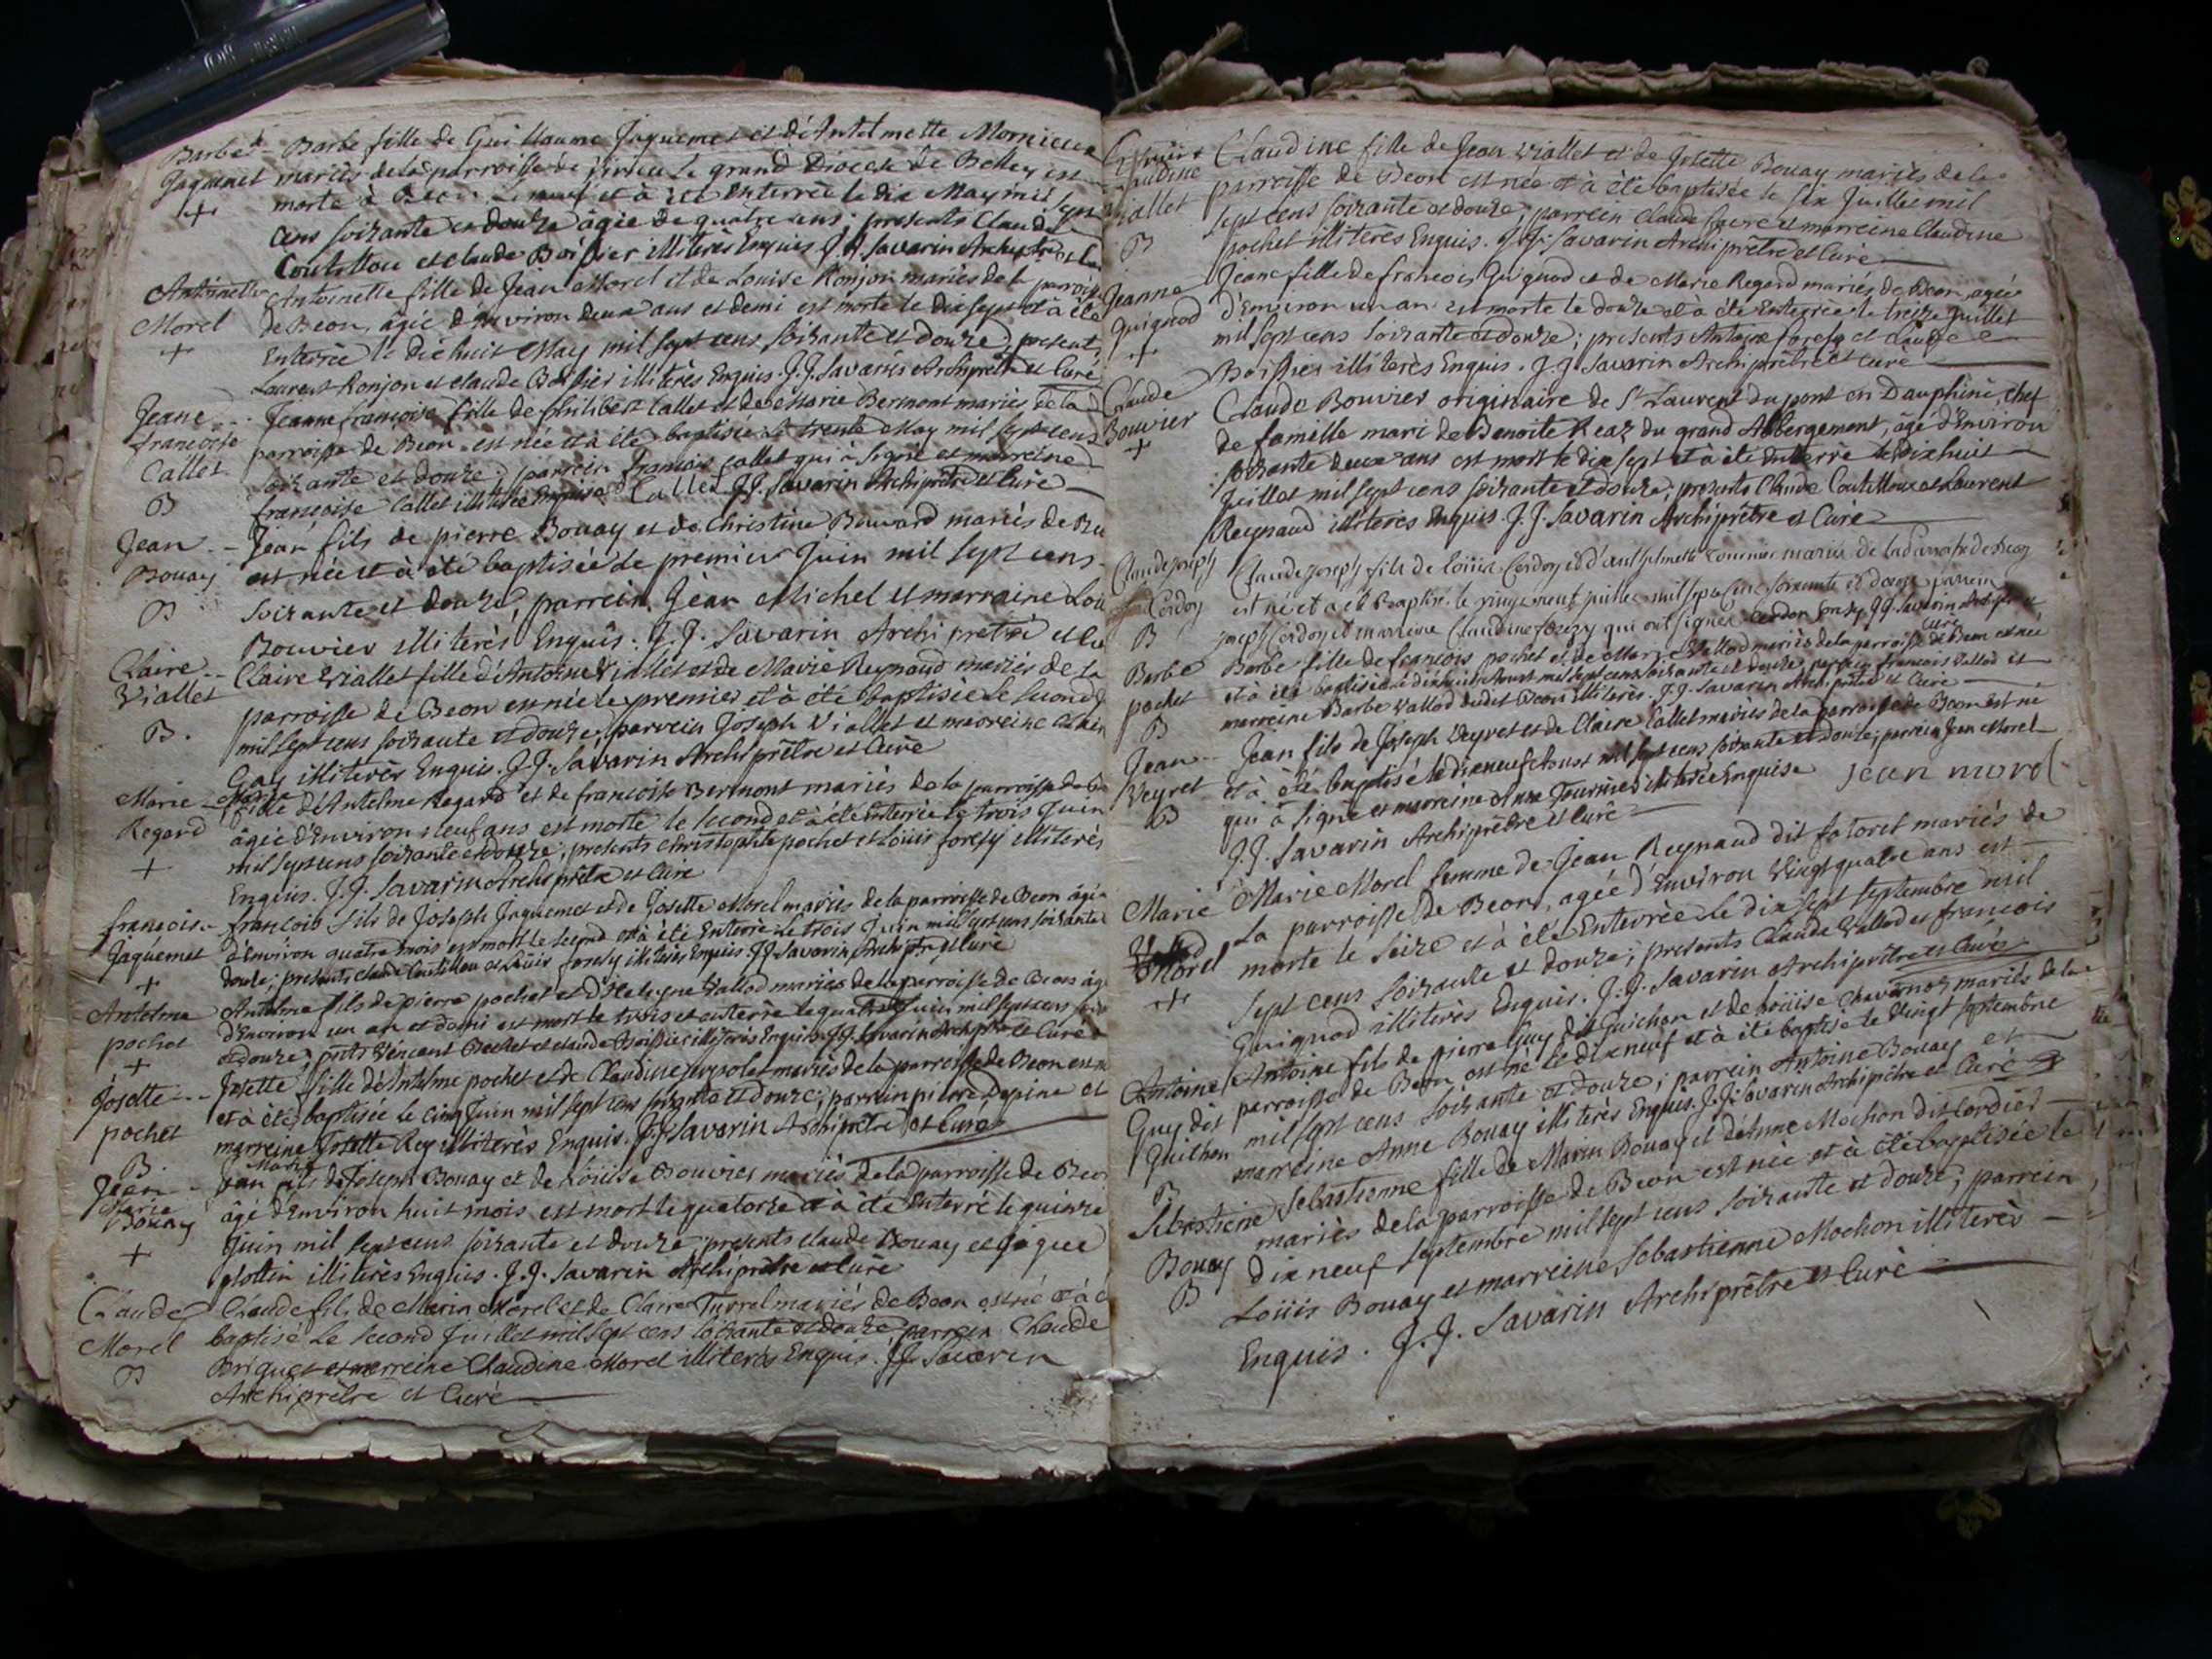 Barbe
Jaquemet
+
Barbe fille de Guillaume Jaquemet et d'Antelmette Mornieux
mariès de la parroisse de virieu Le grand Diocese de Belley est
morte à Beon le neuf et à été Enterrée le dix May mil sept
cens soixante et douze âgée de quatre ans; presents Claude
Coutillou et claude Boissier illiterès Enquis J.J. Savarin Archiprêtre et Cu
Antoinette
Morel
+
Antoinette fille de Jean Morel et de Louise Ronjon mariès de la parroisse
de Beon, âgée d'Environ deux ans et demi est morte le dix sept et à été
Enterrèe le dix huit May mil sept cens soixante et douze, presents
Laurent Ronjon et claude Boissier illiterès Enquis. J.J. Savarin Archiprêtre et Curé
Jeane
francoise
Callet
B
Jeanne francoise fille de philibert Callet et de Marie Bermont mariès de la
parroisse de Beon est née et à été baptisée le trente May mil sept cens
soixante et douze; parrein francois Callet qui à signé et marreine
francoise Callet illiterée Enquise Callet J.J. Savarin Archiprêtre et Curé
Jean
Bouay
B
Jean fils de pierre Bouay et de Christine Bouvard mariès de Be
est née et à été baptisée le premier Juin mil sept cens
soixante et douze, parrein, Jean Michel et marraine Loui
Bouvier illiterès Enquis. J.J. Savarin Archi pretre et Cu
Claire
Viallet
B.
Claire Viallet fille d'Antoine Viallet et de Marie Reynaud mariès de la
parroisse de Beon est née le premier et à été Baptisée le second J
mil sept cens soixante et douze, parrein Joseph Viallet et marreine Claire
Gay illiterès Enquis. J.J. Savarin Archiprêtre et Curé
Marie
Regard
+
Marie
fille d'Antelme Regard et de francoise Bermont mariès de la parroisse de Be
âgée d'Environ neuf ans est morte le second et à été Enterrée le trois Juin
mil sept cens soixante et douze; presents christophle pochet et Loüis foresy illiterès
Enquis. J.J. Savarin Archiprêtre et Curé
francois
Jaquemet
+
francois fils de Joseph Jaquemet et de Josette Morel mariès de la parroisse de Beon âgé
d'Environ quatre mois est mort le second et à été Enterré le trois Juin mil sept cens soixante
douze; presents claude Coutillou et Loüis foresy illiterès Enquis J.J. Savarin Archiptre et Curé
Antelme
pochet
+
Antelme fils de pierre pochet et d'Heleyne Vallod mariès de la parroisse de Beon âgé
d'Environ un an et demi est mort le trois et enterré le quatre Juin mil sept cens soix
et douze; pnts Vincent Bechet et claude Boissier illiterès Enquis J.J. Savarin Archiptre et Curé
Josette
pochet
B
Josette fille d'Antelme pochet et de Claudine Jurpolet mariès de la parroisse de Beon est n
et à été baptisée le cinq Juin mil sept cens soixante et douze; parrein pierre Depine et
marreine Josette Rey illiterès Enquis. J.J. Savarin Archiprêtre et Curé
Jean
Marie
Bouay
+
Marie
Jean fils de Joseph Bouay et de Loüise Bouvier mariès de la parroisse de Beon
âgé d'Environ huit mois est mort le quatorze et à été Enterré le quinze
Juin mil sept cens soixante et douze; presents claude Bouay et Jaque
Mottin illiterès Enquis. J.J. Savarin Archiprêtre et Curé
Claude
Morel
B
Claude fils de Marin Morel et de Claire Turrel mariès de Beon est né et à é
baptisé le second Juillet mil sept cens soixante et douze, parrein Claude
Briquet et marreine Claudine Morel illiterès Enquis. J.J. Savarin
Archiprêtre et Curé
Claudine
Viallet
B
Claudine fille de Jean Viallet et de Josette Bouay mariès de la
parroisse de Beon est née et à été baptisée le six Juillet mil
sept cens soixante et douze; parrein Claude favre et marreine Claudine
pochet illiterès Enquis. J.J. Savarin Archiprêtre et Curé
Jeanne
Quignod
+
Jeane fille de francois Guignod et de Marie Regard mariès de Beon, agée
d'Environ un an est morte le douze et à été Enterrée le treize Juillet
mil sept cens soixante et douze; presents Antoine foresy et claude
Boissier illiterès Enquis. J.J. Savarin Archiprêtre et Curé
Claude
Bouvier
+
Claude Bouvier originaire de St Laurent du pont en Dauphiné, chef
de famille mari de Benoite Reaz du grand Abbergement, âgé d'Environ
soixante deux ans est mort le dix sept et à été Enterré le dix huit
Juillet mil sept cens soixante et douze; presents Claude Coutillou et Laurent
Reynaud illiterès Enquis. J.J. Savarin Archiprêtre et Curé
Claude joseph
Cordoy
B
Claude joseph fils de loüis Cordoy et d'anthelmette tournier mariès de la Parroisse de Beon
est né et a été Baptisé le vingt neuf juillet mil sept cens soixante et douze parrein
joseph Cordoy et marreine Claudine forezy qui ont signés Cordon forezy J.J. Savarin Archiprêtre
Curé
Barbe
pochet
B
Barbe fille de francois pochet et de Marie Vallod mariès de la parroisse de Beon est née
et à été baptisée le dix huit Aoust mil sept cens soixante et douze, parrein francois Vallod et
marreine Barbe Vallod dudit Beon illiterès. J.J. Savarin Archiprêtre et Curé
Jean
Veyret
B
Jean fils de Joseph Veyret et de Claire Callet mariès de la parroisse de Beon est né
et à été baptisé le dix neuf Aoust mil sept cens soixante et douze, parrein Jean Morel
qui à signé et marreine Anne Tournier illiterée Enquise jean morel
J.J. Savarin Archiprêtre et Curé
Marie
Morel
+
Marie Morel femme de Jean Reynaud dit fatoret mariès de
La parroisse de Beon, agée d'Environ Vingt quatre ans est
morte le seize et à été Enterrée le dix sept septembre mil
sept cens soixante et douze; presents Claude Vallod et francois
Guignod illiterès Enquis. J.J. Savarin Archiprêtre et Curé
Antoine
Guy dit
Guichon
B
Antoine fils de pierre Guy dit Guichon et de Loüise Chavornoz mariès de la
parroisse de Beon est né le dix neuf et à été baptisé le Vingt septembre
mil sept cens soixante et douze; parrein Antoine Bouay et
marreine Anne Bouay illiterès Enquis. J.J. Savarin Archiprêtre et Curé
Sebastiene
Bouay
B
Sebastienne fille de Marin Bouay et d'Anne Mochon dit Cordier
mariès de la parroisse de Beon est née et à été baptisée le
dix neuf septembre mil sept cens soixante et douze; parrein
Loüis Bouay et marreine Sebastienne Mochon illiterès
Enquis. J.J. Savarin Archiprêtre et Curé